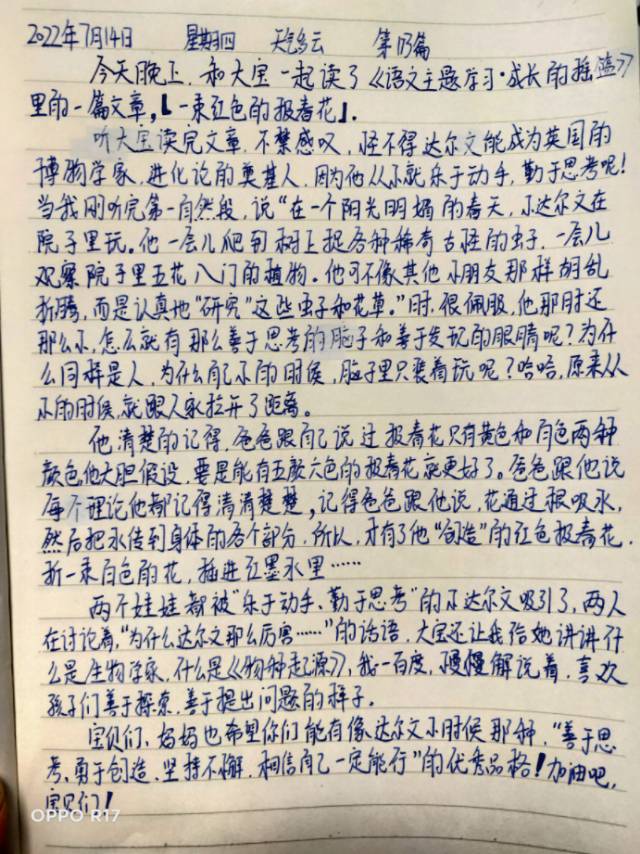 2022年7月14日 星期四 天气多云 第173篇
今天晚上,和大宝一起读了《语文主题学习·成长的摇篮》
里的一篇文章,【一束红色的报春花】.
听大宝读完文章,不禁感叹,怪不得达尔文能成为英国的
博物学家,进化论的奠基人,因为他从小就乐于动手,勤于思考呢!
当我刚听完第一自然段,说“在一个阳光明媚的春天,小达尔文在
院子里玩。他一会儿爬到树上捉各种稀奇古怪的虫子,一会儿
观察院子里五花八门的植物.他可不像其他小朋友那样胡乱
折腾,而是认真地“研究”这些虫子和花草.”时.很佩服,他那时还
那么小,怎么就有那么善于思考的脑子和善于发现的眼睛呢?为什
么同样是人,为什么自己小的时候,脑子里只装着玩呢?哈哈,原来从
小的时候,就跟人家拉开了距离。
他清楚的记得,爸爸跟自己说过报春花只有黄色和白色两种
颜色,他大胆假设,要是能有五颜六色的报春花就更好了。爸爸跟他说
每个理论他都记得清清楚楚,记得爸爸跟他说,花通过根吸水,
然后把水传到身体的各个部分.所以,才有了他“创造”的红色报春花.
折一束白色的花,插进红墨水里……
两个娃娃都被“乐于动手、勤于思考”的小达尔文吸引了,两人
在讨论着,“为什么达尔文那么厉害……”的话语,大宝还让我给她讲讲什
么是生物学家,什么是《物种起源》,我一百度,慢慢解说着,喜欢
孩子们善于探索,善于提出问题的样子.
宝贝们、妈妈也希望你们能有像达尔文小时候那种,“善于思
考、勇于创造、坚持不懈、相信自己一定能行”的优秀品格!加油吧,
宝贝们!
OPPO R17